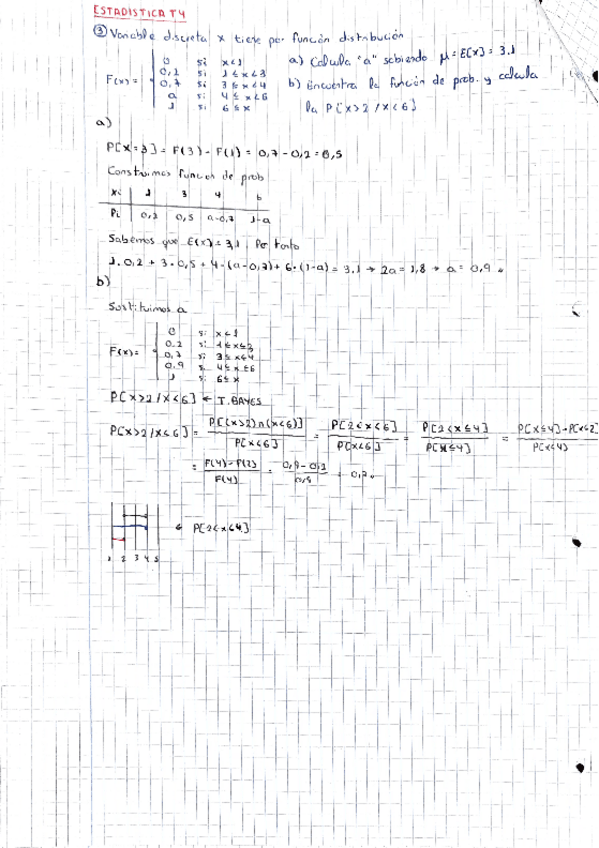 ESTADISTICA T4
③ Variable discreta x tiene por función distribución
F(x) = 0 si x<1
0,2 si 1≤x<3
0,7 si 3≤x<4
a si 4≤x<6
1 si 6≤x
a) Calcula "a" sabiendo μ=E[x]= 3.1
b) Encuentra la función de prob. y calcula
la P[x>2/x<6]
a)
P[x=3] = F(3) - F(1) = 0,7 - 0,2 = 0,5
Construimos función de prob
xi 1 3 4 6
Pi 0,2 0,5 a-0,7 1-a
Sabemos que E(x)=3,1 Por tanto
1·0,2 + 3·0,5 + 4·(a-0,7) + 6·(1-a) = 3.1 → 2a = 1,8 → a = 0,9
b)
Sustituimos a
F(x) = 0 si x<1
0.2 si 1≤x≤3
0,7 si 3≤x<4
0.9 si 4≤x≤6
1 si 6≤x
P[x>2/x<6] ← T. BAYES
P[x>2/x<6] = P[(x>2)∩(x<6)] / P[x<6] = P[2<x<6] / P[x<6] = P[2<x≤4] / P[x≤4] = P[x≤4]-P[x≤2] / P[x≤4]
= F(4)-F(2) / F(4) = 0,9-0,2 / 0,9 = 0,7
← P[2<x≤4]
1 2 3 4 5